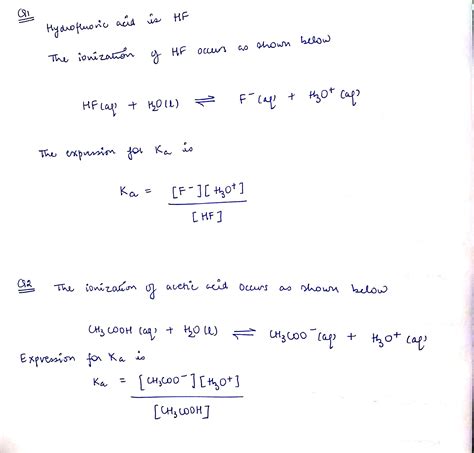 Q1 Hydrofluoric acid is HF
The ionization of HF occurs as shown below
HF(aq) + H₂O(l) ⇌ F⁻(aq) + H₃O⁺(aq)
The expression for Ka is
Ka = [F⁻][H₃O⁺]
[HF]
Q2 The ionization of acetic acid occurs as shown below
CH₃COOH (aq) + H₂O(l) ⇌ CH₃COO⁻(aq) + H₃O⁺(aq)
Expression for Ka is
Ka = [CH₃COO⁻][H₃O⁺]
[CH₃COOH]